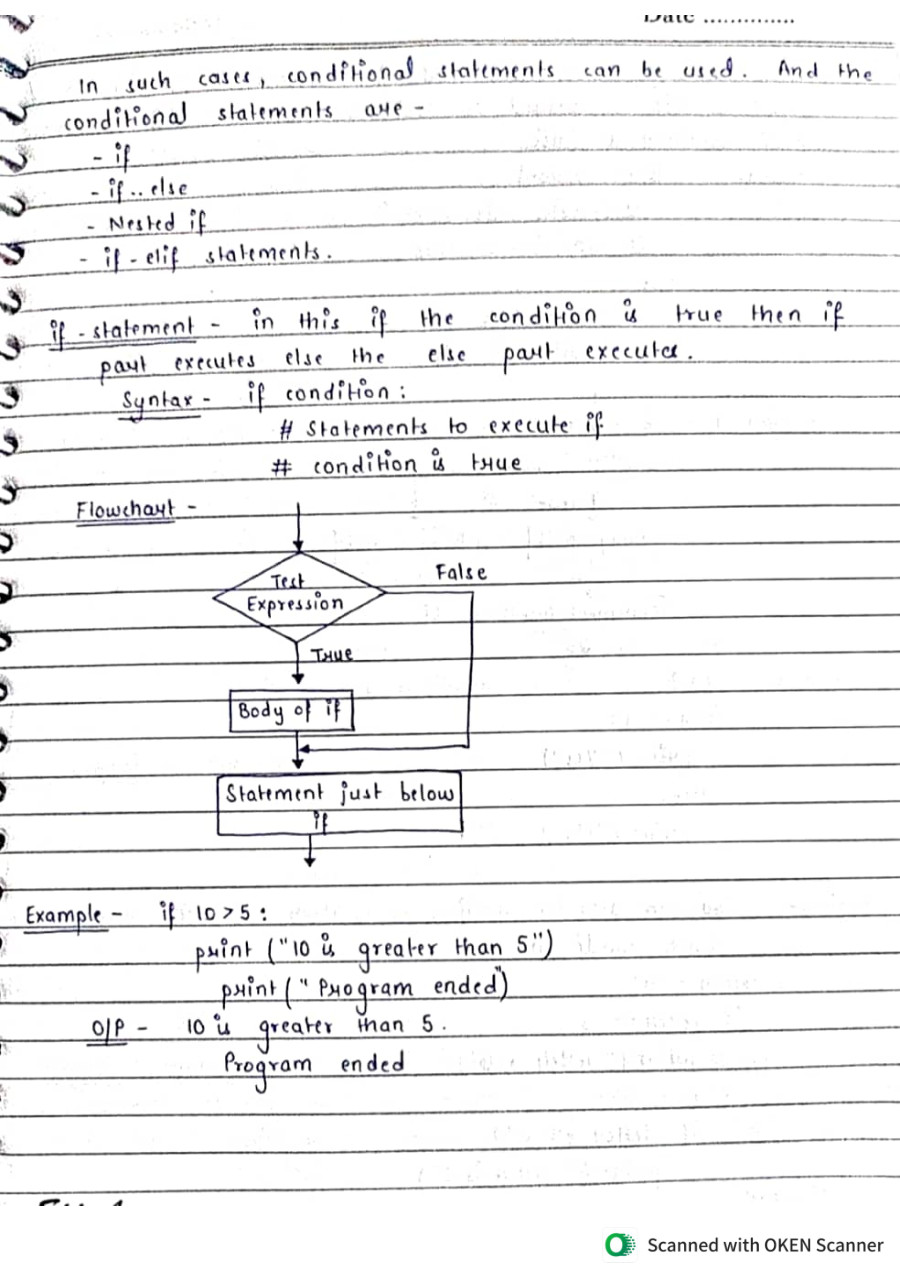 Date ..............
In such cases, conditional statements can be used. And the
conditional statements are -
- if
- if .. else
- Nested if
- if - elif statements.
if - statement - in this if the condition is true then if
part executes else the else part executes.
Syntax - if condition :
# Statements to execute if
# condition is true
Flowchart -
Test
Expression
False
True
Body of if
Statement just below
if
Example - if 10 > 5 :
print ("10 is greater than 5")
print (" Program ended")
O/P - 10 is greater than 5.
Program ended
Scanned with OKEN Scanner